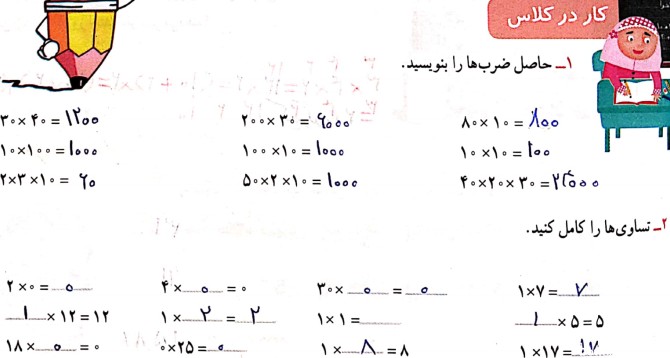 کار در کلاس
۱ــ حاصل ضرب‌ها را بنویسید.
۸۰×۱۰=۸۰۰
۲۰۰×۳۰=۶۰۰۰
۳۰×۴۰=۱۲۰۰
۱۰×۱۰=۱۰۰
۱۰۰×۱۰=۱۰۰۰
۱۰×۱۰۰=۱۰۰۰
۴۰×۲۰×۳۰=۲۴۰۰۰
۵۰×۲×۱۰=۱۰۰۰
۲×۳×۱۰=۶۰
۲ــ تساوی‌ها را کامل کنید.
۱×۷=۷
۳۰×۰=۰
۴×۰=۰
۲×۰=۰
۱×۵=۵
۱×۱=
۱×۲=۲
۱×۱۲=۱۲
۱×۱۷=۱۷
۱×۸=۸
۰×۲۵=۰
۱۸×۰=۰